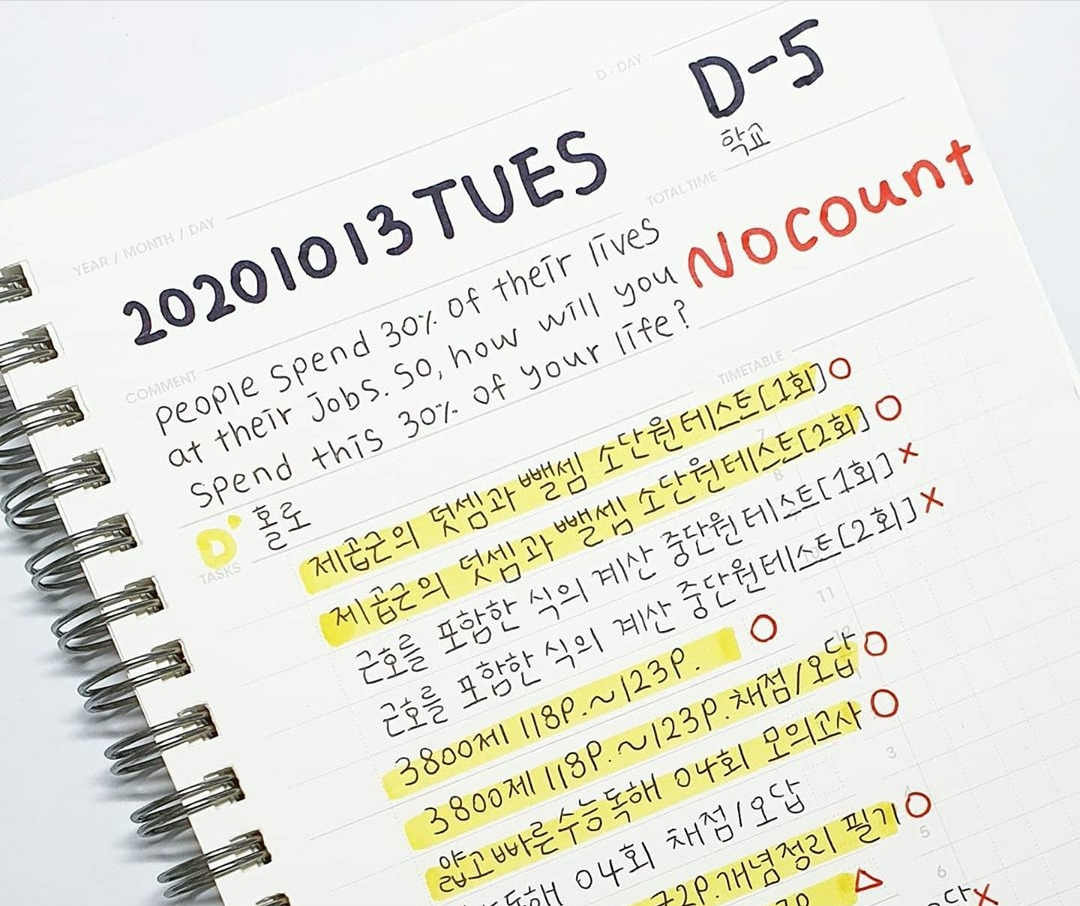 D-DAY
D-5
학교
YEAR / MONTH / DAY
20201013 TUES
TOTAL TIME
No count
COMMENT
people spend 30% of their lives
at their jobs. so, how will you
spend this 30% of your life?
TIMETABLE
D'
홀로
TASKS
제곱근의 덧셈과 뺄셈 소단원테스트[1회] O
제곱근의 덧셈과 뺄셈 소단원테스트[2회] O
근호를 포함한 식의 계산 중단원테스트[1회] X
근호를 포함한 식의 계산 중단원테스트[2회] X
3800제 118P.~123P. O
3800제 118P.~123P. 채점/오답 O
얇고빠른수능독해 04회 모의고사 O
독해 04회 채점/오답
2P.개념정리 필기 O
△
답 X
7
8
11
3
5
6